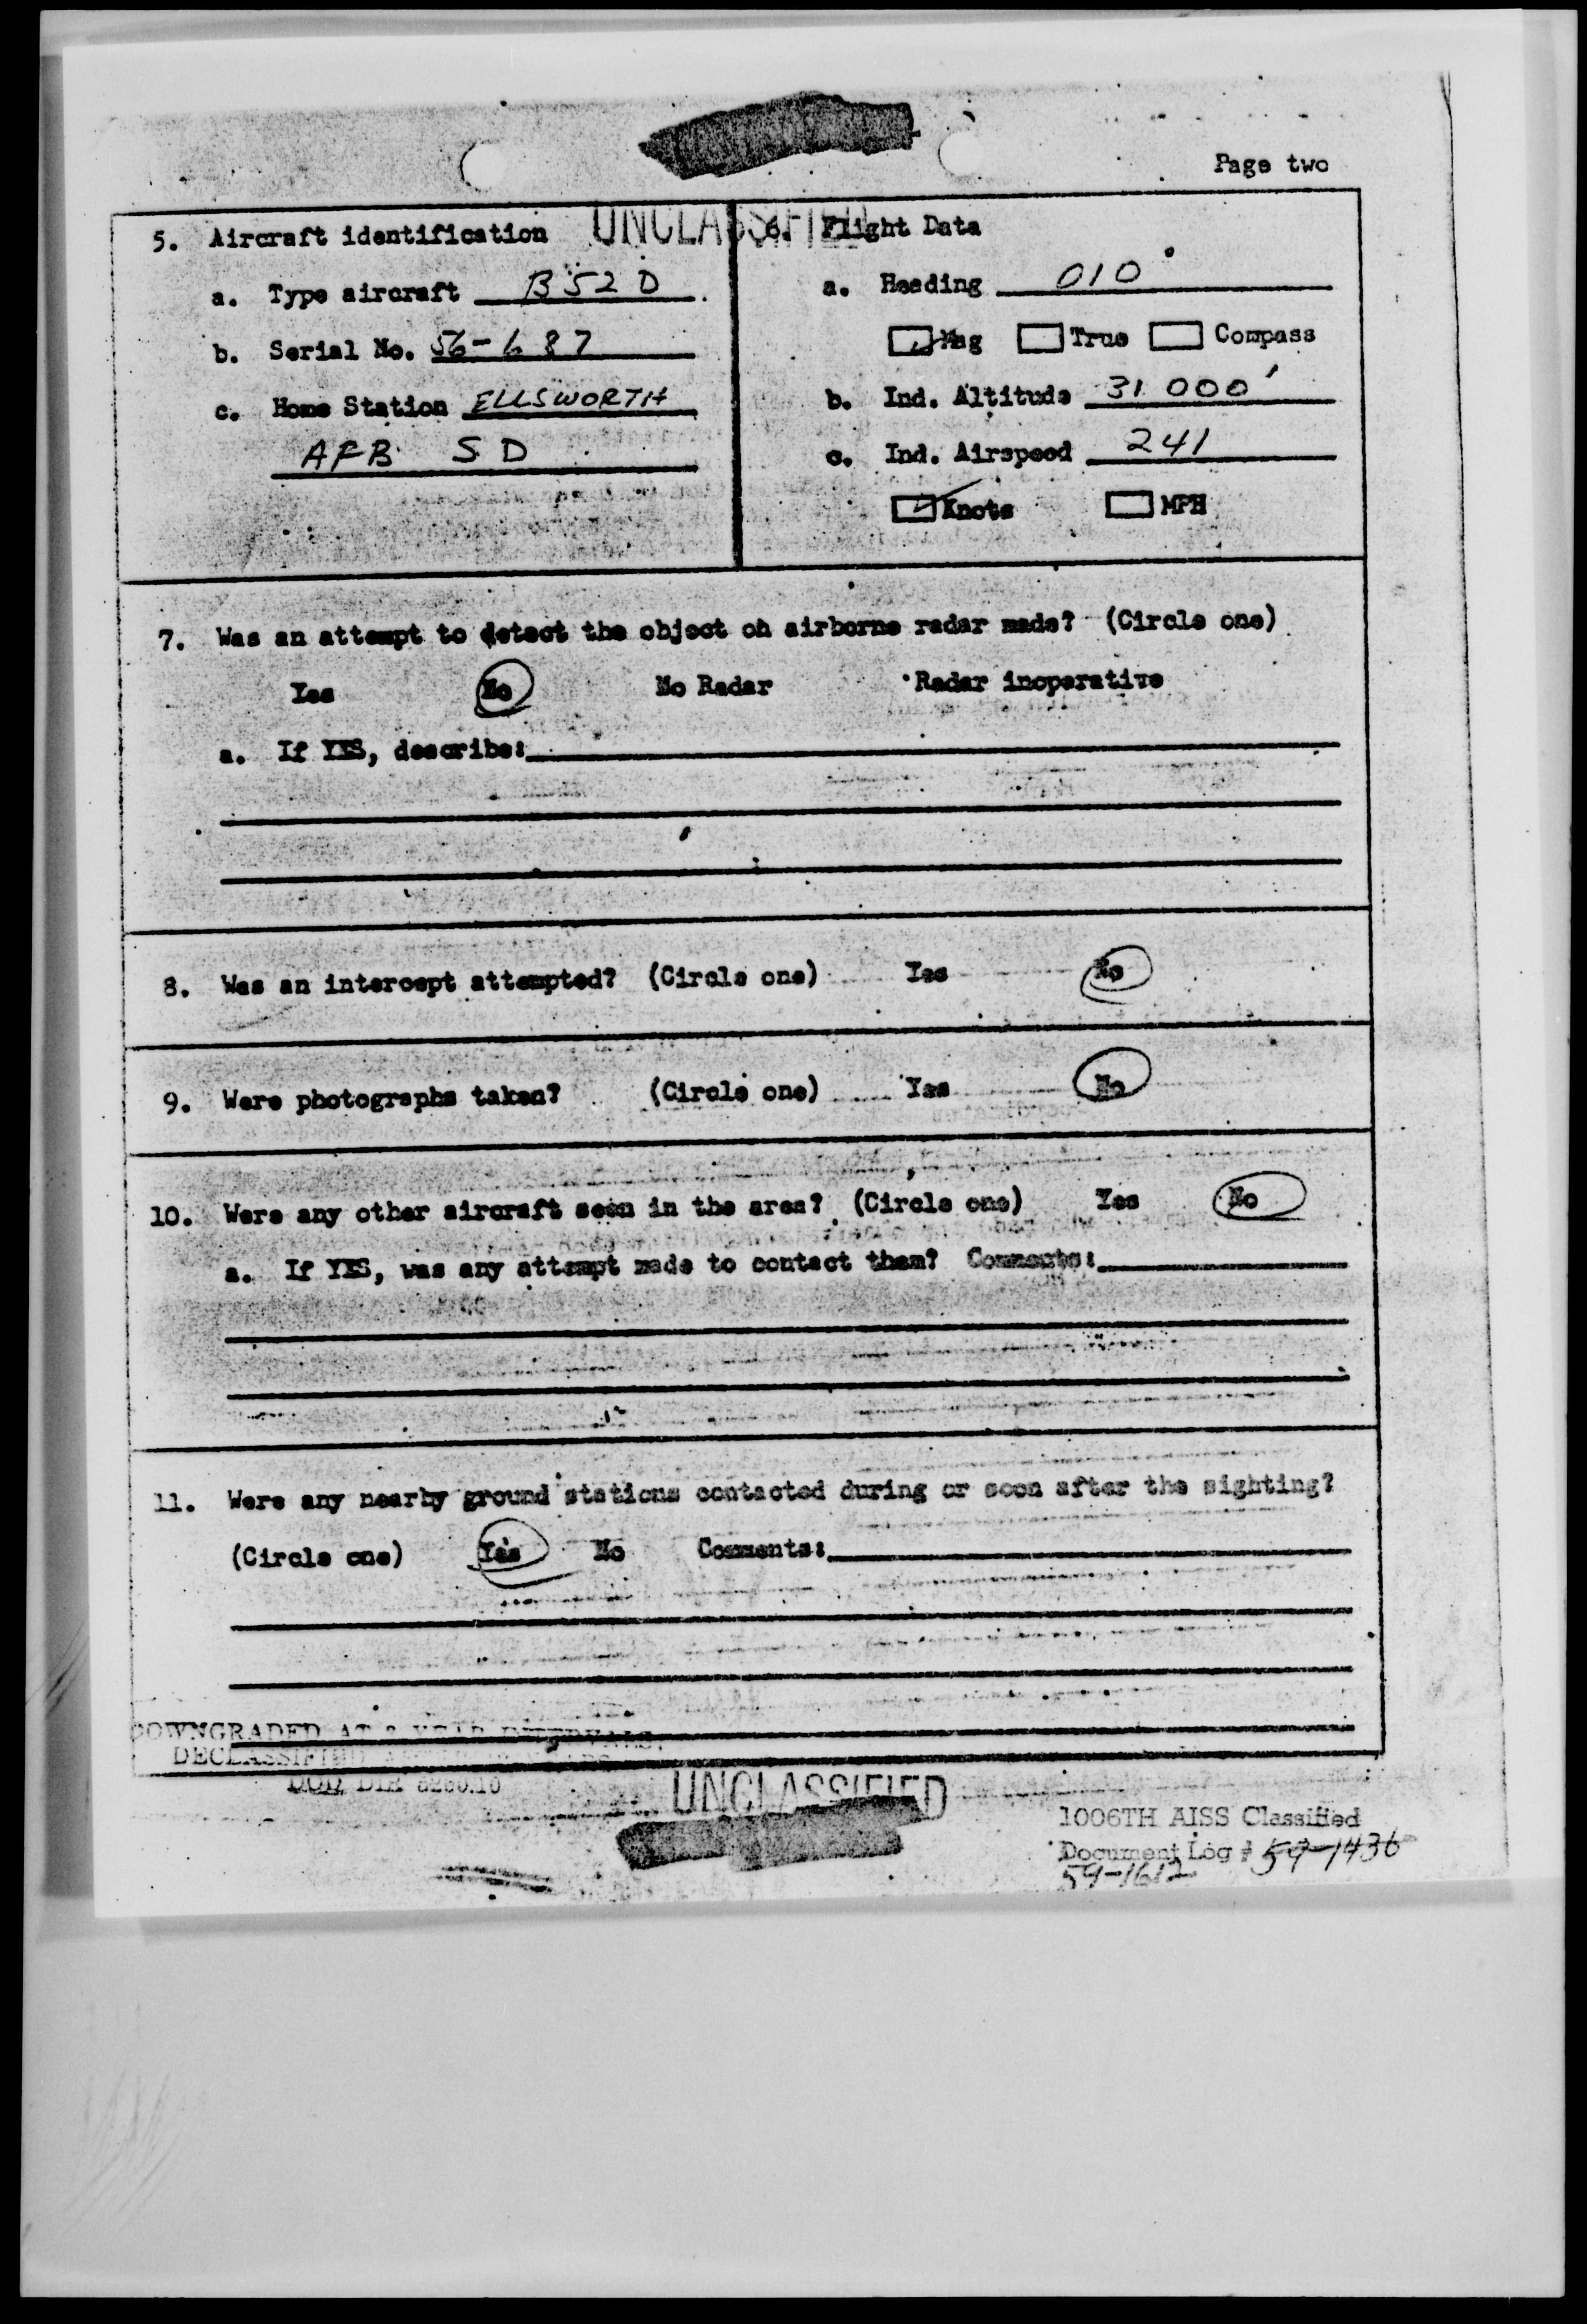 Page two
UNCLASSIFIED
5. Aircraft identification
a. Type aircraft B52D
b. Serial No. 56-687
c. Home Station ELLSWORTH
AFB SD
6. Flight Data
a. Heading 010°
Mag True Compass
b. Ind. Altitude 31 000'
c. Ind. Airspeed 241
Knots MPH
7. Was an attempt to detect the object on airborne radar made? (Circle one)
Yes No No Radar Radar inoperative
a. If YES, describe:
8. Was an intercept attempted? (Circle one) Yes No
9. Were photographs taken? (Circle one) Yes No
10. Were any other aircraft seen in the area? (Circle one) Yes No
a. If YES, was any attempt made to contact them? Comments:
11. Were any nearby ground stations contacted during or soon after the sighting?
(Circle one) Yes No Comments:
DOWNGRADED AT 3 YEAR INTERVALS.
DECLASSIFIED
DOD DIR 5200.10
UNCLASSIFIED
1006TH AISS Classified
Document Log # 59-1436
59-1612